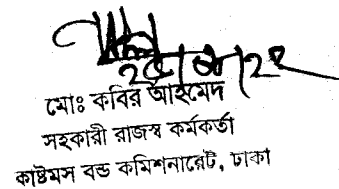 মোঃ কবির আহমেদ
সহকারী রাজস্ব কর্মকর্তা
কাষ্টমস বন্ড কমিশনারেট, ঢাকা